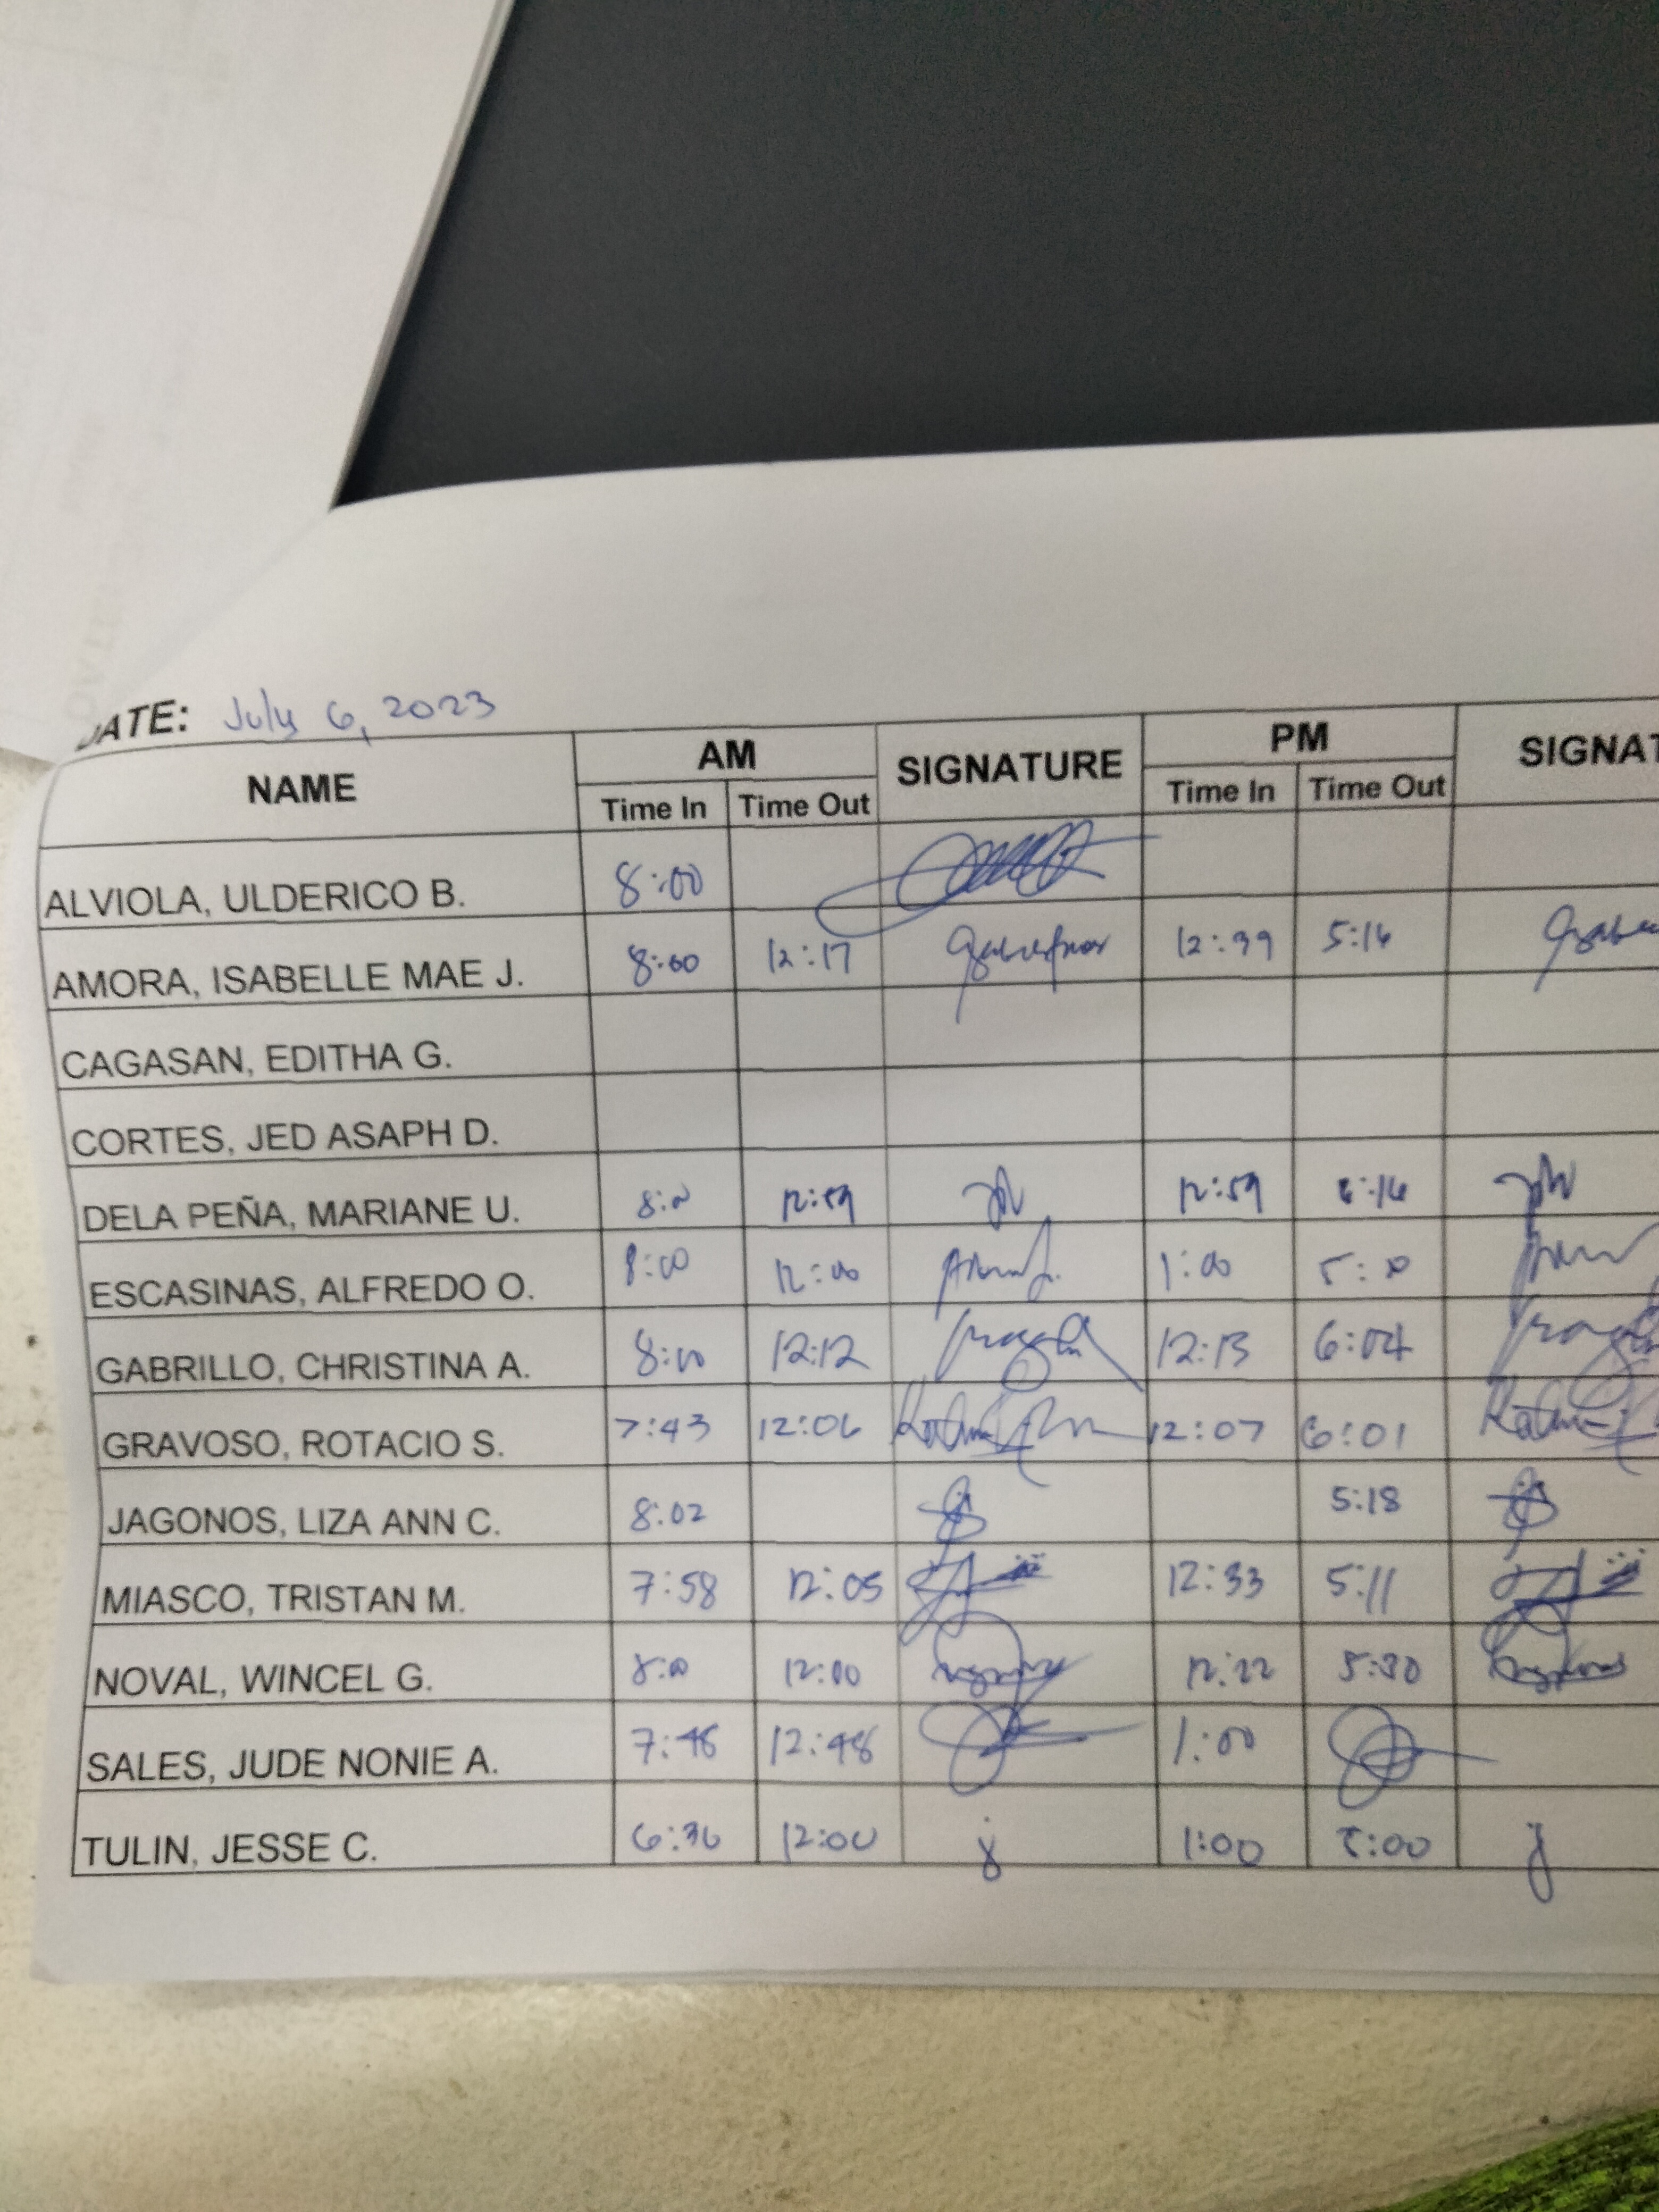 DATE: July 6, 2023
NAME AM SIGNATURE PM SIGNAT
Time In Time Out Time In Time Out
ALVIOLA, ULDERICO B. 8:00
AMORA, ISABELLE MAE J. 8:00 12:17 12:39 5:16
CAGASAN, EDITHA G.
CORTES, JED ASAPH D.
DELA PEÑA, MARIANE U. 12:59 12:59
ESCASINAS, ALFREDO O. 8:00 12:00 1:00
GABRILLO, CHRISTINA A. 8:00 12:12 12:13 6:04
GRAVOSO, ROTACIO S. 7:43 12:06 12:07 6:01
JAGONOS, LIZA ANN C. 8:02 5:18
MIASCO, TRISTAN M. 7:58 12:05 12:33 5:11
NOVAL, WINCEL G. 8:00 12:00 12:22 5:30
SALES, JUDE NONIE A. 7:48 12:48 1:00
TULIN, JESSE C. 6:36 12:00 1:00 5:00